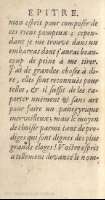 EPITRE.
nous esprit pour composer de
ces vieux pompeux; cepen-
dant je me trouve dans un
embarras dont j'ai eu beau-
coup de peine à me tirer.
J'ai de grandes choses à di-
re, elles sont reconnuës pour
telles, & il suffit de les ra-
porter nuëment & sans art
pour faire un panegyrique
merveilleux; mais le moyen
de choisir parmi tant de pro-
diges qui sont dignes des plus
grands eloges! Vostre esprit
a tellement devancé le nom-